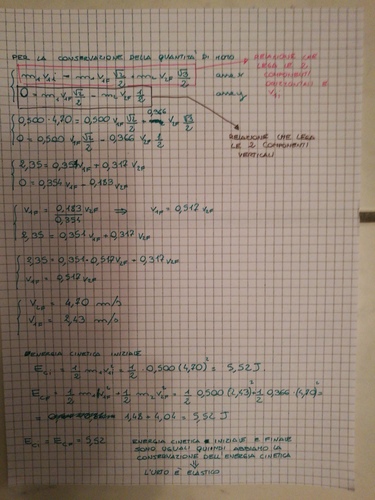 PER LA CONSERVAZIONE DELLA QUANTITÀ DI MOTO
m₁ v₁ᵢ = m₁ v₁F √2/2 + m₂ v₂F √3/2 asse x
0 = m₁ v₁F √2/2 - m₂ v₂F 1/2 asse y
RELAZIONE CHE
LEGA LE 2
COMPONENTI
ORIZZONTALI E
RELAZIONE CHE LEGA
LE 2 COMPONENTI
VERTICALI
0,500 · 4,70 = 0,500 v₁F √2/2 + 0,366 v₂F √3/2
0 = 0,500 v₁F √2/2 - 0,366 v₂F 1/2
2,35 = 0,354 v₁F + 0,317 v₂F
0 = 0,354 v₁F - 0,183 v₂F
v₁F = 0,183/0,354 v₂F ⇒ v₁F = 0,517 v₂F
2,35 = 0,354 v₁F + 0,317 v₂F
2,35 = 0,354 · 0,517 v₂F + 0,317 v₂F
v₁F = 0,517 v₂F
v₂F = 4,70 m/s
v₁F = 2,43 m/s
ENERGIA CINETICA INIZIALE
Eci = 1/2 m₁ v₁ᵢ² = 1/2 · 0,500 (4,70)² = 5,52 J
EcF = 1/2 m₁ v₁F² + 1/2 m₂ v₂F² = 1/2 0,500 (2,43)² + 1/2 0,366 · (4,70)² =
= 1,48 + 4,04 = 5,52 J
Eci = EcF = 5,52 ENERGIA CINETICA INIZIALE E FINALE
SONO UGUALI QUINDI ABBIAMO LA
CONSERVAZIONE DELL'ENERGIA CINETICA
⇓
L'URTO È ELASTICO